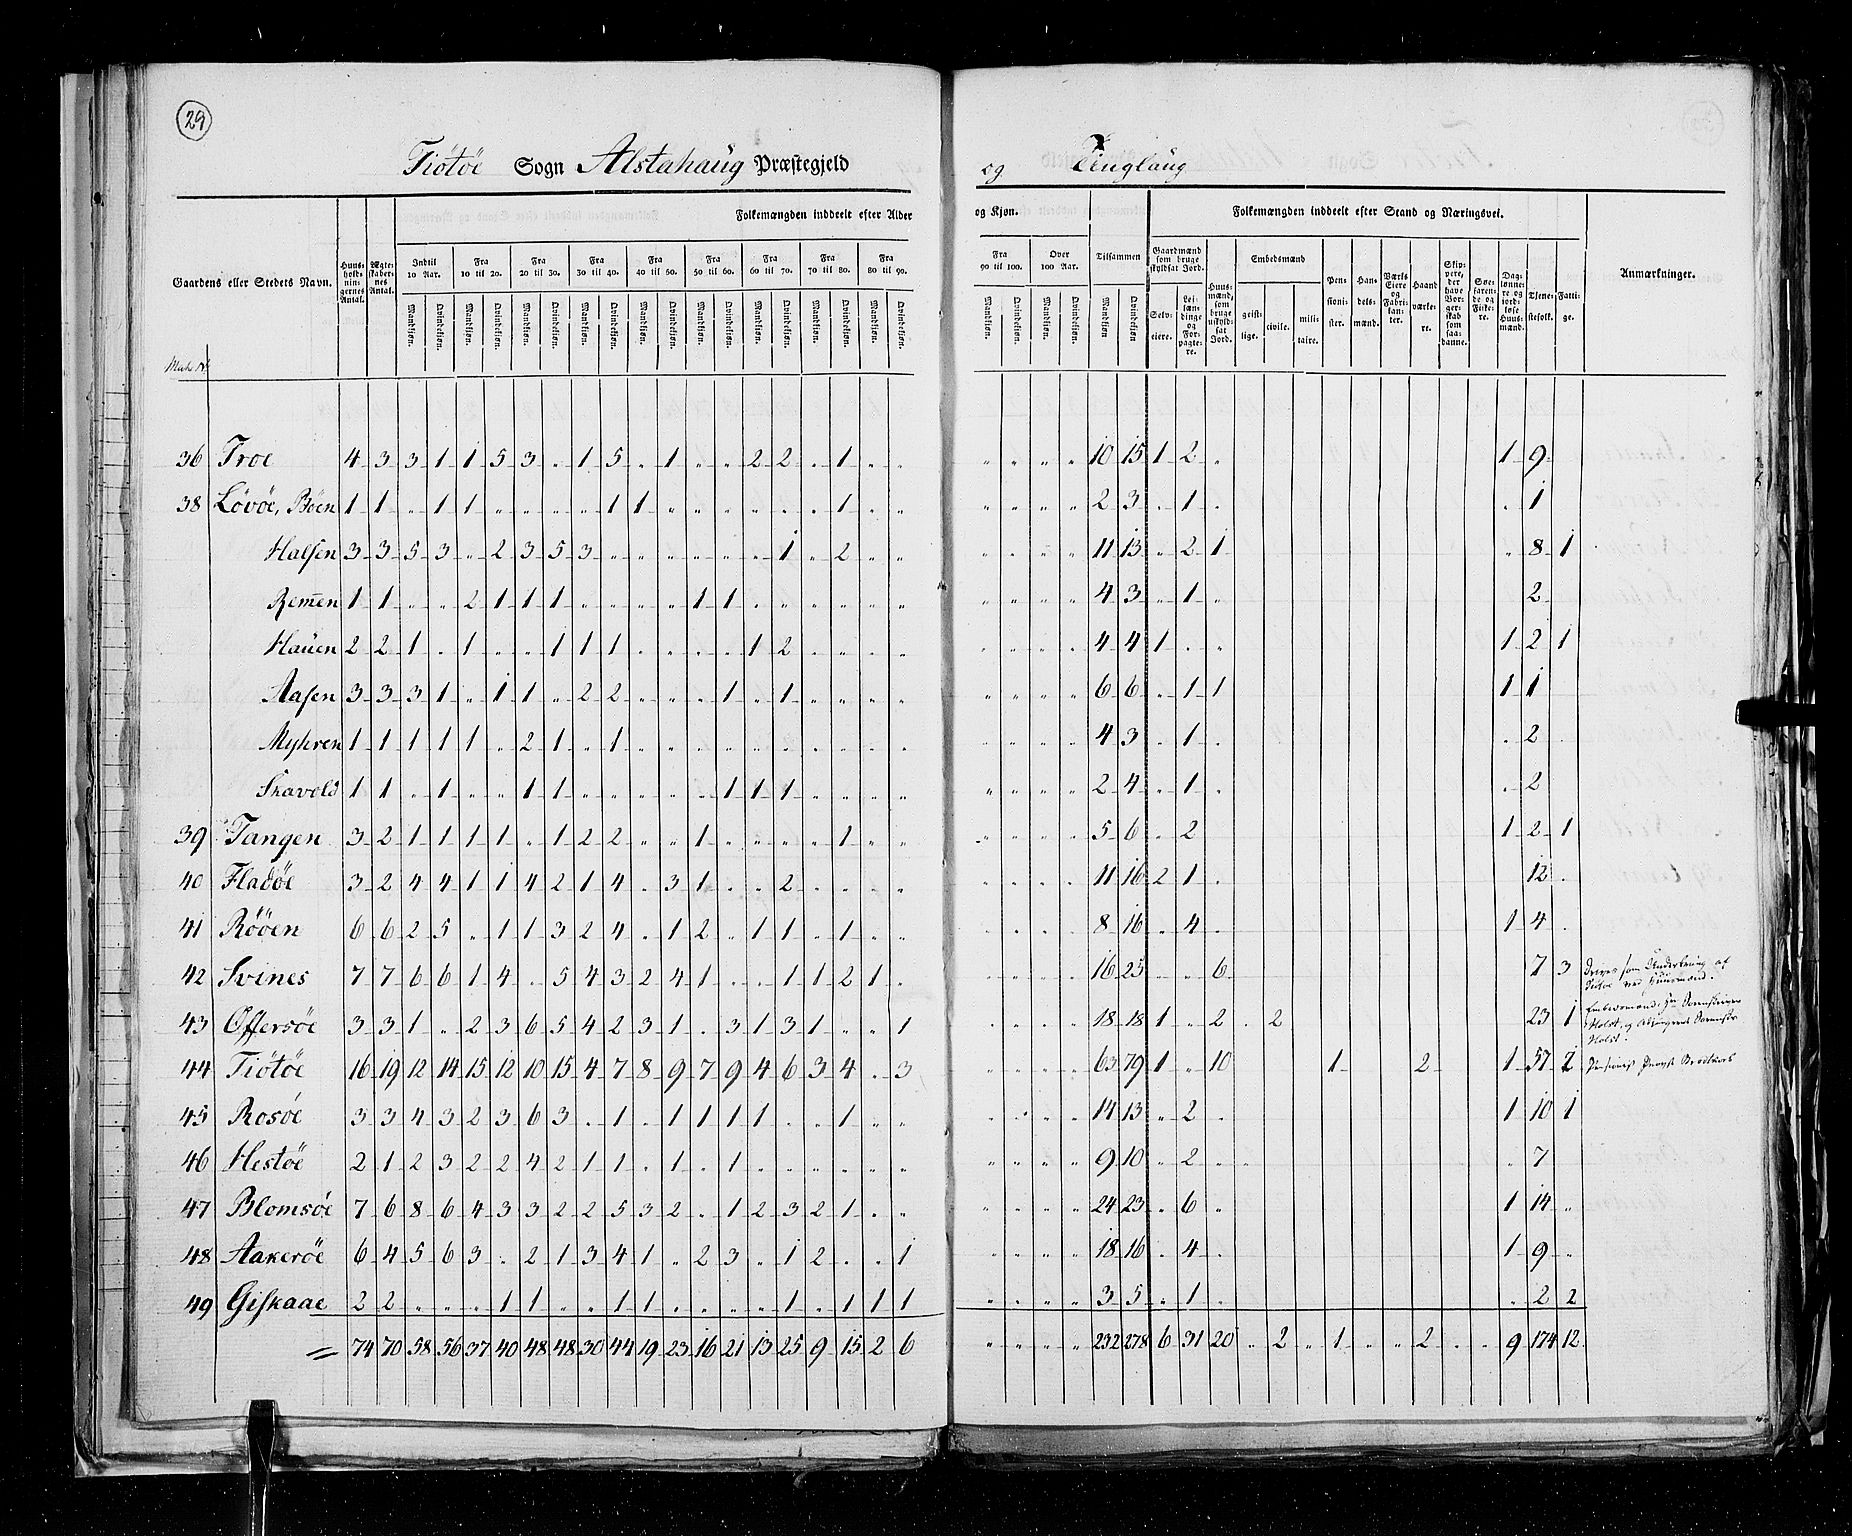 29
Tiötöe Sogn Alstahaug Præstegjeld
og Tinglaug
Gaardens eller Stedets Navn. Huusholdningernes Antal. Ægteskabernes Antal. Folkemængden inddeelt efter Alder
og Kjøn. Tilsammen Folkemængden inddeelt efter Stand og Næringsvei. Anmærkninger.
Indtil 10 Aar. Fra 10 til 20. Fra 20 til 30. Fra 30 til 40. Fra 40 til 50. Fra 50 til 60. Fra 60 til 70. Fra 70 til 80. Fra 80 til 90.
Fra 90 til 100. Over 100 Aar.
Gaardmænd som bruge skyldsat Jord. Huusmænd, som bruge uskyldsat Jord. Embedsmænd Pensionister. Handelsmænd. Værks Eiere og Fabrikanter. Haandværkere. Skippere, der have Borgerskab som saadanne. Søefarende og Fiskere. Dagslønnere og jordløse Huusmænd. Tjenestefolk. Fattige.
Selveiere. Leilændinge og Forpagtere. geistlige. civile. militaire.
Mandkjøn. Qvindekjøn. Mandkjøn. Qvindekjøn. Mandkjøn. Qvindekjøn. Mandkjøn. Qvindekjøn. Mandkjøn. Qvindekjøn. Mandkjøn. Qvindekjøn. Mandkjøn. Qvindekjøn. Mandkjøn. Qvindekjøn. Mandkjøn. Qvindekjøn.
Mandkjøn. Qvindekjøn. Mandkjøn. Qvindekjøn. Mandkjøn. Qvindekjøn.
Matr. N.
36 Troe 4 3 3 1 1 5 3 " 1 5 " 1 " " 2 2 " 1 " " " " " " 10 15 1 2 " 1 9
38 Løvøe, Böen 1 1 " 1 1 " " " " 1 1 " " " " " " 1 " " " " " " 2 3 " 1 " " 1
Halsen 3 3 5 3 " 2 3 5 3 " " " " " " 1 " 2 " " " " " " 11 13 " 2 1 " 8 1
Remen 1 1 " " 2 1 1 1 " " " " 1 1 " " " " " " " " " " 4 3 " 1 " 2
Hauen 2 2 1 " 1 " " 1 1 1 " " " " 1 2 " " " " " " " " 4 4 1 " " 1 2 1
Aasen 3 3 3 1 " 1 1 " 2 2 " " " 1 " 1 " " " " " " " " 6 6 " 1 1 1 1
Myhren 1 1 1 1 1 " 2 1 " 1 " " " " " " " " " " " " " " 4 3 " 1 " " 2
Skavold 1 1 " 1 " " 1 1 " " " " " 1 1 1 " " " " " " " " 2 4 " 1 " " 2
39 Tangen 3 2 1 1 1 1 " 1 2 2 " " 1 " " " " 1 " " " " " " 5 6 " 2 1 2 1
40 Fladøe 3 2 4 4 1 1 4 2 1 4 " 3 1 " " 2 " " " " " " " " 11 16 2 1 " 12
41 Röøen 6 6 2 5 " 1 1 3 2 4 " 1 2 " 1 1 " 1 " " " " " " 8 16 " 4 " 1 4
42 Svines 7 7 6 6 1 4 " 5 4 3 2 4 1 " " 1 1 2 1 " " " " " 16 25 " " 6 7 3 som af
43 Øffersøe 3 3 1 " 2 3 6 5 4 2 3 1 " 3 1 3 1 " " 1 " " " " 18 18 1 " 2 " 2 23 1 Embedsmænd, Hr. Sorenskriver
Holst, og
Holst.
44 Tiötöe 16 19 12 14 15 12 10 15 4 7 8 9 7 9 4 6 3 4 " 3 " " " " 63 79 1 " 10 1 2 1 57 2
45 Rosöe 3 3 4 3 2 3 6 3 " 1 " 1 1 1 1 " " 1 " " " " " " 14 13 " 2 " 1 10 1
46 Hestöe 2 1 2 3 2 2 4 2 1 1 " 1 " 1 " " " " " " " " " " 9 10 " 2 " " " 7
47 Blomsöe 7 6 8 6 4 3 3 2 2 5 3 2 " 1 2 3 2 1 " " " " " " 24 23 " 6 " 1 14 "
48 Aakeröe 6 4 5 6 3 " 2 1 3 4 1 " 2 3 " 1 2 " " 1 " " " " 18 16 " 4 " 1 9 "
49 Giskaae 2 2 " " " 1 1 " " 1 1 " " " " 1 " 1 1 1 " " " " 3 5 " 1 " " 2 2
= 74 70 58 56 37 40 48 48 30 44 19 23 16 21 13 25 9 15 2 6 " " " " 232 278 6 31 20 " 2 " 1 " " 2 " " 9 174 12